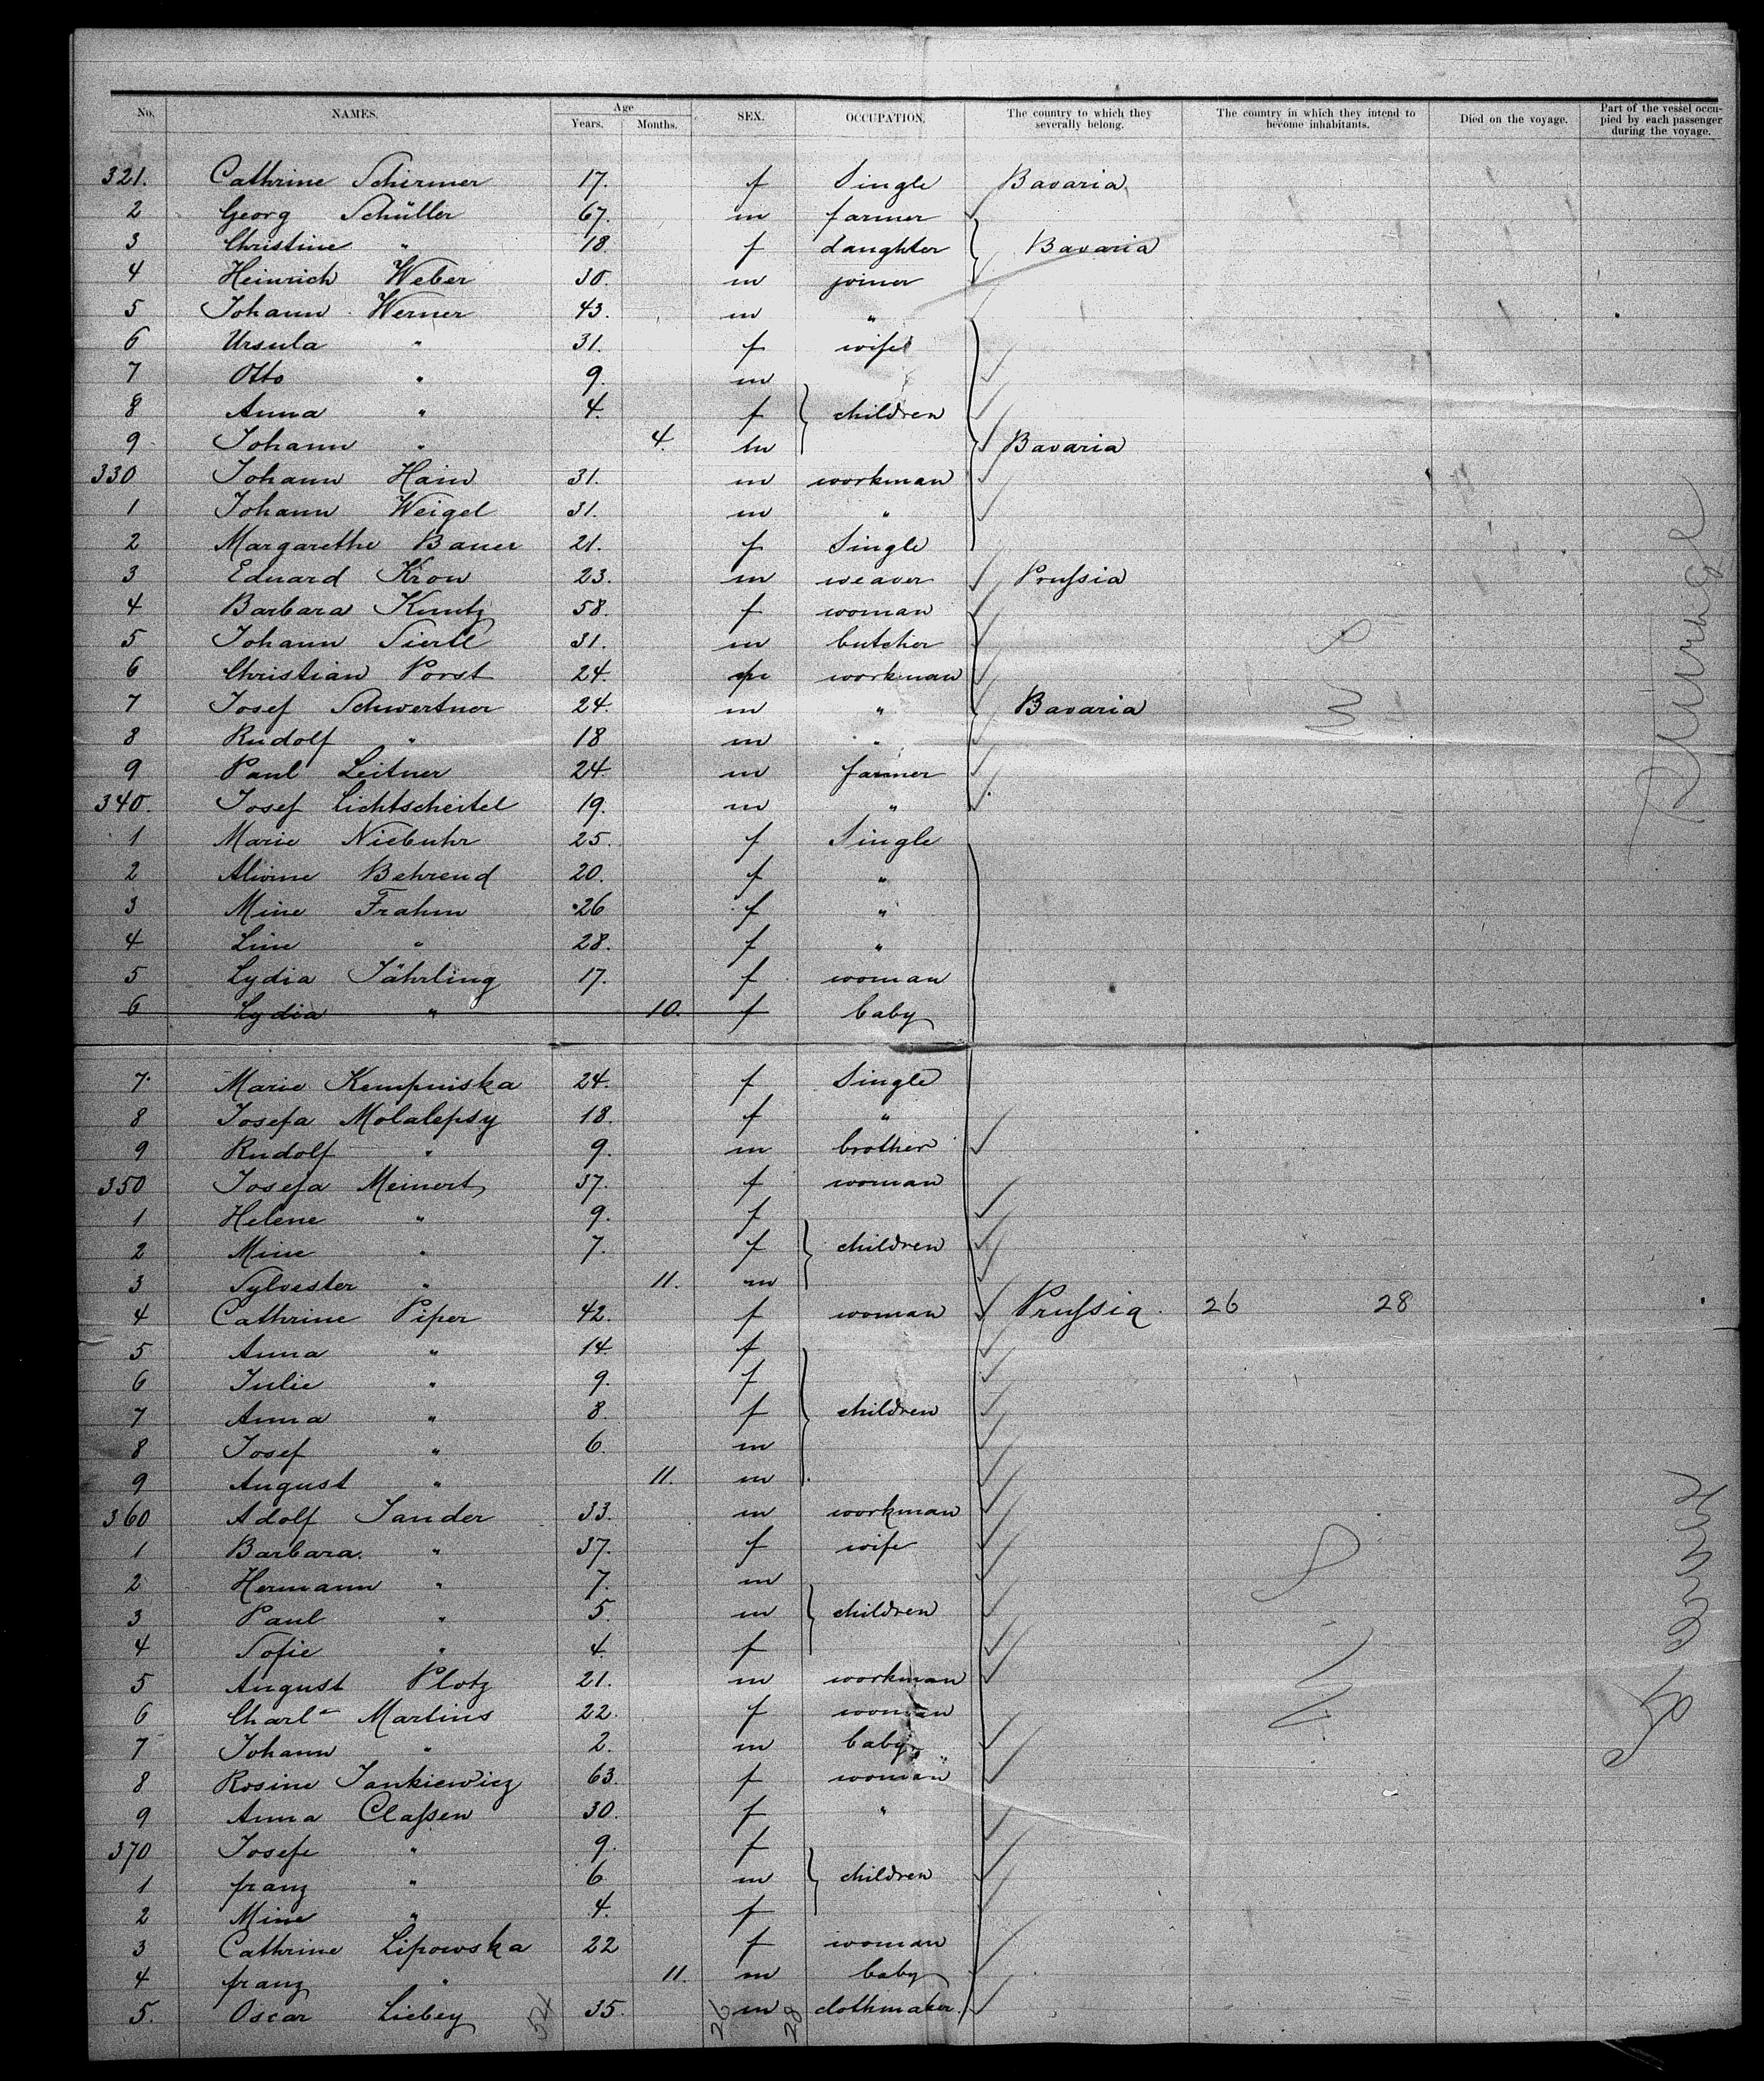 No. NAMES. Age Years. Months. SEX. OCCUPATION. The country to which they severally belong. The country in which they intend to become inhabitants. Died on the voyage. Part of the vessel occupied by each passenger during the voyage.
321. Cathrine Schirmer 17. f Single Bavaria
2 Georg Schüller 67. m farmer
3 Christine " 18. f daughter Bavaria
4 Heinrich Weber 30. m joiner
5 Johann Werner 43. m "
6 Ursula " 31. f wife
7 Otto " 9. m
8 Anna " 4. f children
9 Johann " 4. m Bavaria
330 Johann Hain 31. m workman
1 Johann Weigel 31. m "
2 Margarethe Bauer 21. f Single
3 Eduard Kron 23. m weaver Prussia
4 Barbara Kuntz 58. f woman
5 Johann Siertl 31. m butcher
6 Christian Porst 24. m workman
7 Josef Schwertner 24. m " Bavaria
8 Rudolf " 18 m "
9 Paul Leitner 24. m farmer
340. Josef Lichtscheitel 19. m "
1 Marie Niebuhr 25. f Single
2 Alwine Behrend 20. f "
3 Mine Frahm 26 f "
4 Line " 28. f "
5 Lydia Jährling 17. f woman
6 Lydia " 10. f baby
7. Marie Kempinska 24. f Single
8 Josefa Molalepsy 18. f "
9 Rudolf " 9. m brother
350 Josefa Meinert 37. f woman
1 Helene " 9. f
2 Mine " 7. f children
3 Sylvester " 11. m
4 Cathrine Piper 42. f woman Prussia. 26 28
5 Anna " 14. f
6 Julie " 9. f
7 Anna " 8. f children
8 Josef " 6. m
9 August " 11. m
360 Adolf Jander 33. m workman
1 Barbara. " 37. f wife
2 Hermann " 7. m
3 Paul " 5. m children
4 Sofie " 4. f
5 August Plotz 21. m workman
6 Charl- Martins 22. f woman
7 Johann " 2. m baby
8 Rosine Jankiewicz 63. f woman
9 Anna Classen 30. f "
370 Josefe " 9. f
1 franz " 6 m children
2 Mine " 4. f
3 Cathrine Lipowska 22 f woman
4 franz " 11. m baby
5. Oscar Liebey 35. m clothmaker
54 26 28